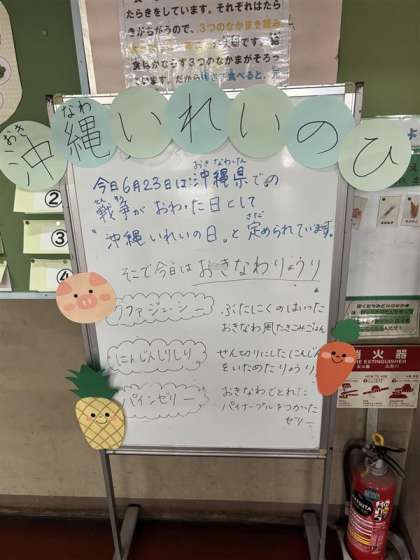 たらきをしています。それぞれはたら
きがちがうので、3つのなかまを読み
食
はかならず3つのなかまがそろっ
ています。だから
おき なわ
沖縄いれいのひ
おき なわ けん
今日6月23日は沖縄県での
せん そう
戦争がおわった日として
さだ
"沖縄いれいの日"と定められています。
そこで今日はおきなわりょうり
クファジューシー
ぶたにくのはいった
おきなわ風たきこみごはん
にんじんしりしり
せん切りにしたにんじん
をいためたりょうり
パインゼリー
おきなわでとれた
パイナップルをつかった
ゼリー
②
③
④
消火器
FIRE EXTINGUISHER